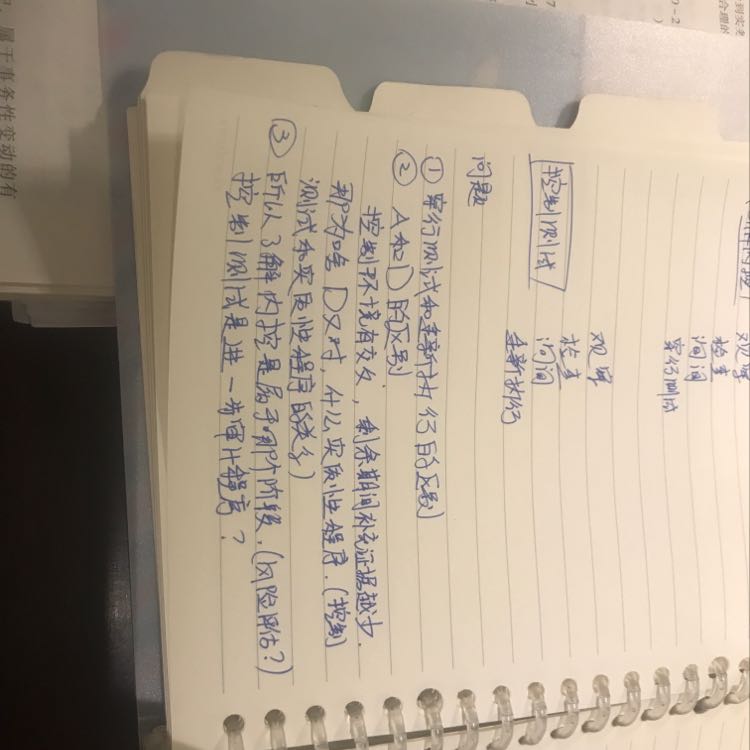 观察
检查
询问
穿行测试
控制测试
观察
检查
询问
重新执行
问题
① 穿行测试和重新执行的区别
② A和D的区别
控制环境有效,剩余期间补充证据越少.
那为啥D又对,什么实质性程序.(控制
测试和实质性程序的关系)
③ 所以了解内控是属于哪个阶段.(风险评估?)
控制测试是进一步审计程序?
属于事务性变动的有